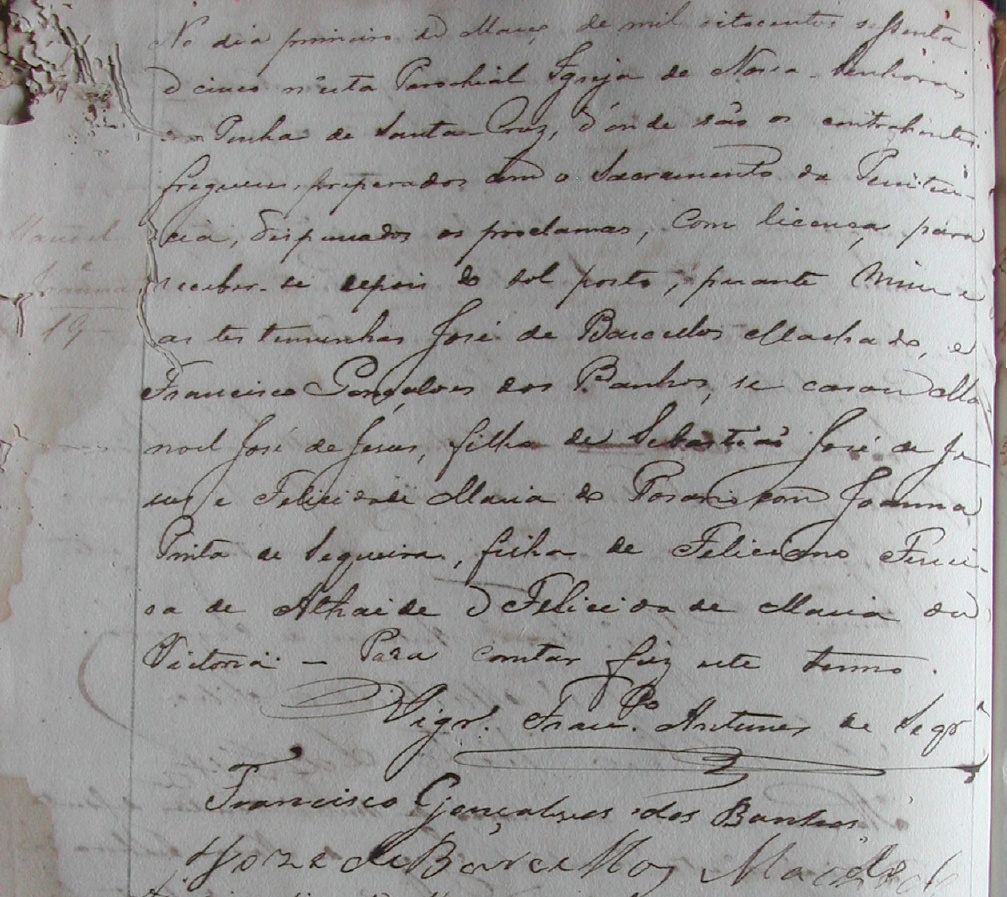 No dia primeiro de Março de mil oitocentos sessenta
e cinco n'esta Parochial Igreja de Nossa Senhora
da Penha de Santa Cruz, d'onde são os contrahentes
freguezes, preparados com o Sacramento da Peniten-
cia, dispensados os proclamas, com licença para
receber-se depois do sol posto, perante mim e
as testemunhas José de Barcellos Machado, e
Francisco Gonçalves dos Banhos, se casou Ma-
noel José de Jesus, filho de Sebastião José de Je-
sus e Felicidade Maria do com Joanna
Pinta de Sequeira, filha de Feliciano Ferrei-
ra de Athaide e Felicidade Maria da
Victoria - Para constar fiz este termo.
Vigr.º Fran.co Antunes de Seqr.ª
Francisco Gonçalves dos Banhos
Joze de Barcellos Machado
Manoel
e
Joanna
19